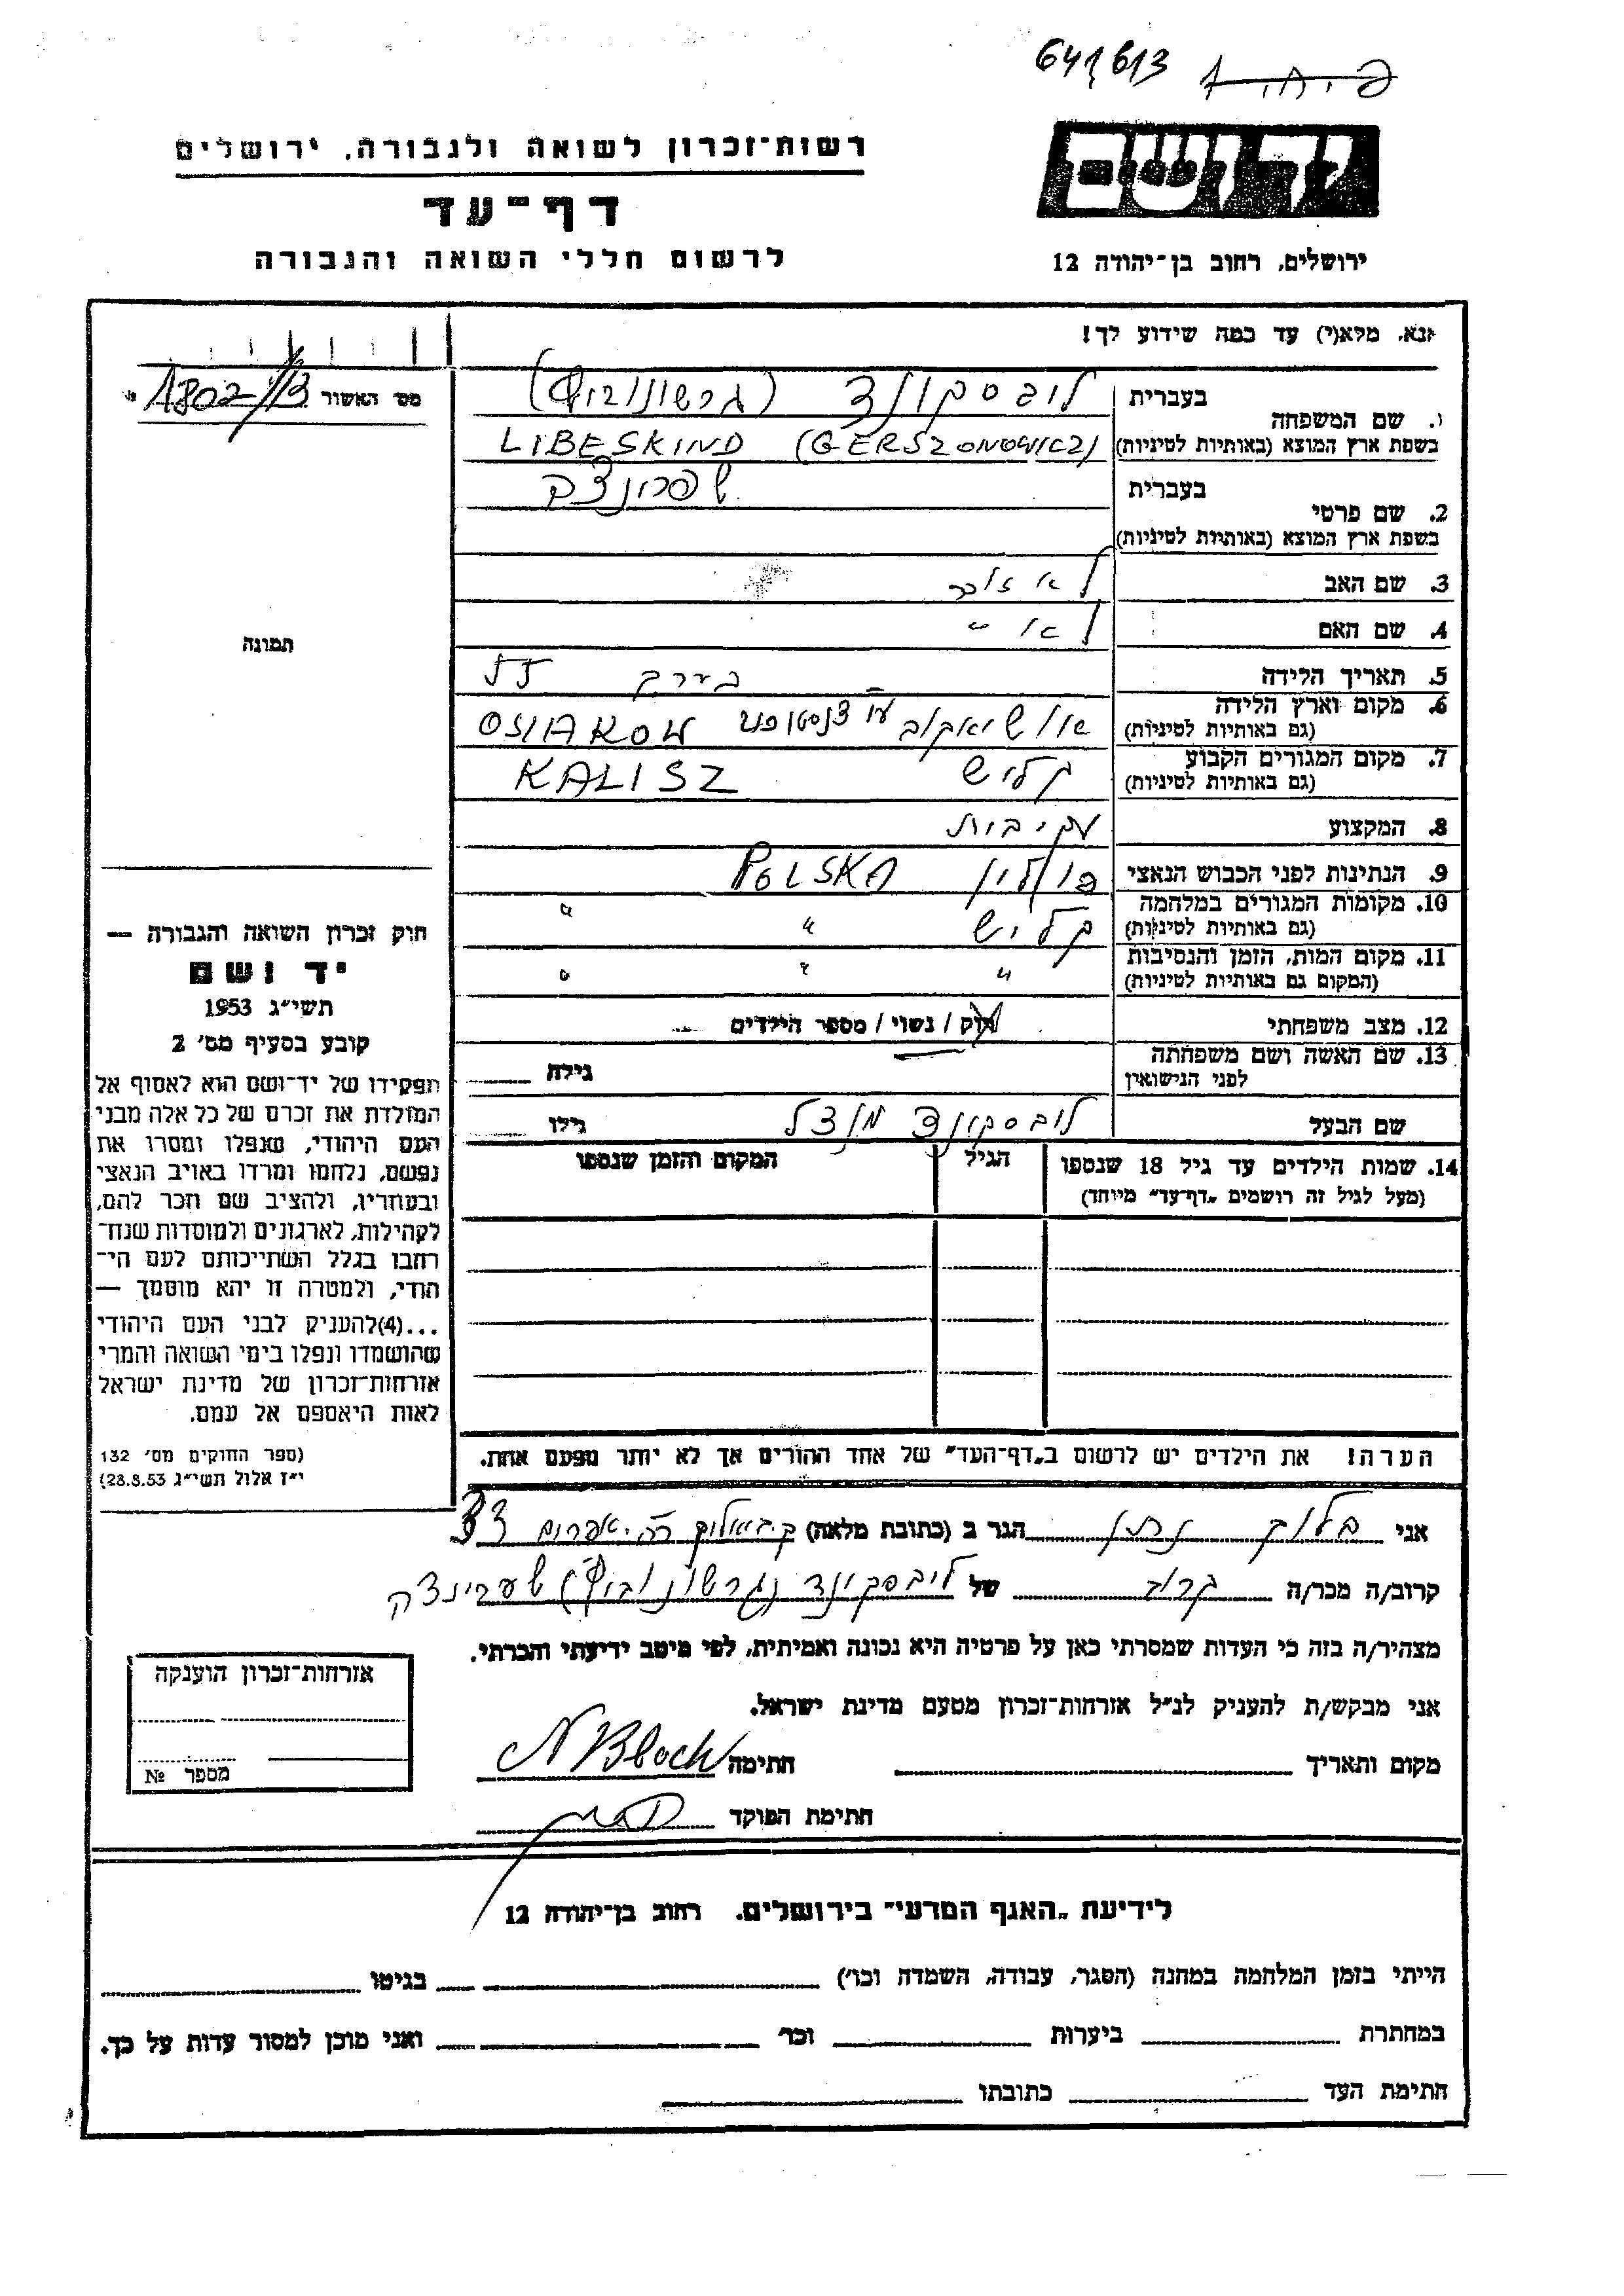 641/613
רשות־זכרון לשואה ולגבורה, ירושלים
דף־עד
לרשום חללי השואה והגבורה
יד ושם
ירושלים, רחוב בן־יהודה 12
נא, מלא(י) עד כמה שידוע לך!
מס׳ האשור 1802/13
תמונה
1. שם המשפחה
בעברית ליבסקינד (גרשונוביץ)
בשפת ארץ המוצא (באותיות לטיניות) LIBESKIND (GERSZONOWICZ)
2. שם פרטי
בעברית
בשפת ארץ המוצא (באותיות לטיניות)
3. שם האב
4. שם האם
5. תאריך הלידה בערך
6. מקום וארץ הלידה
(גם באותיות לטיניות) OSIAKOW
7. מקום המגורים הקבוע קליש KALISZ
(גם באותיות לטיניות)
8. המקצוע
9. הנתינות לפני הכבוש הנאצי פולין POLSKA
10. מקומות המגורים במלחמה קליש " "
(גם באותיות לטיניות)
11. מקום המות, הזמן והנסיבות " " "
(המקום גם באותיות לטיניות)
12. מצב משפחתי רוק / נשוי / מספר הילדים
13. שם האשה ושם משפחתה גילה
לפני הנישואין
שם הבעל ליבסקינד מנדל גילו
14. שמות הילדים עד גיל 18 שנספו הגיל המקום והזמן שנספו
(מעל לגיל זה רושמים „דף־עד” מיוחד)
הערה! את הילדים יש לרשום ב„דף־העד” של אחד ההורים אך לא יותר מפעם אחת.
חוק זכרון השואה והגבורה —
יד ושם
תשי״ג 1953
קובע בסעיף מס׳ 2
תפקידו של יד־ושם הוא לאסוף אל
המולדת את זכרם של כל אלה מבני
העם היהודי, שנפלו ומסרו את
נפשם, נלחמו ומרדו באויב הנאצי
ובעוזריו, ולהציב שם וזכר להם,
לקהילות, לארגונים ולמוסדות שנח־
רבו בגלל השתייכותם לעם הי־
הודי, ולמטרה זו יהא מוסמך —
...(4)להעניק לבני העם היהודי
שהושמדו ונפלו בימי השואה והמרי
אזרחות־זכרון של מדינת ישראל
לאות היאספם אל עמם.
(ספר החוקים מס׳ 132
י״ז אלול תשי״ג 28.8.53)
אני בלוך נתן הגר ב (כתובת מלאה) ק. ביאליק 33
קרוב/ה מכר/ה קרוב של ליבסקינד (גרשונוביץ)
מצהיר/ה בזה כי העדות שמסרתי כאן על פרטיה היא נכונה ואמיתית, לפי מיטב ידיעתי והכרתי.
אני מבקש/ת להעניק לנ״ל אזרחות־זכרון מטעם מדינת ישראל.
מקום ותאריך חתימה N Bloch
חתימת הפוקד
אזרחות־זכרון הוענקה
מספר №
לידיעת „האגף המדעי” בירושלים. רחוב בן־יהודה 12
הייתי בזמן המלחמה במחנה (הסגר, עבודה, השמדה וכו׳) בגיטו
במחתרת ביערות וכו׳ ואני מוכן למסור עדות על כך.
חתימת העד כתובתו